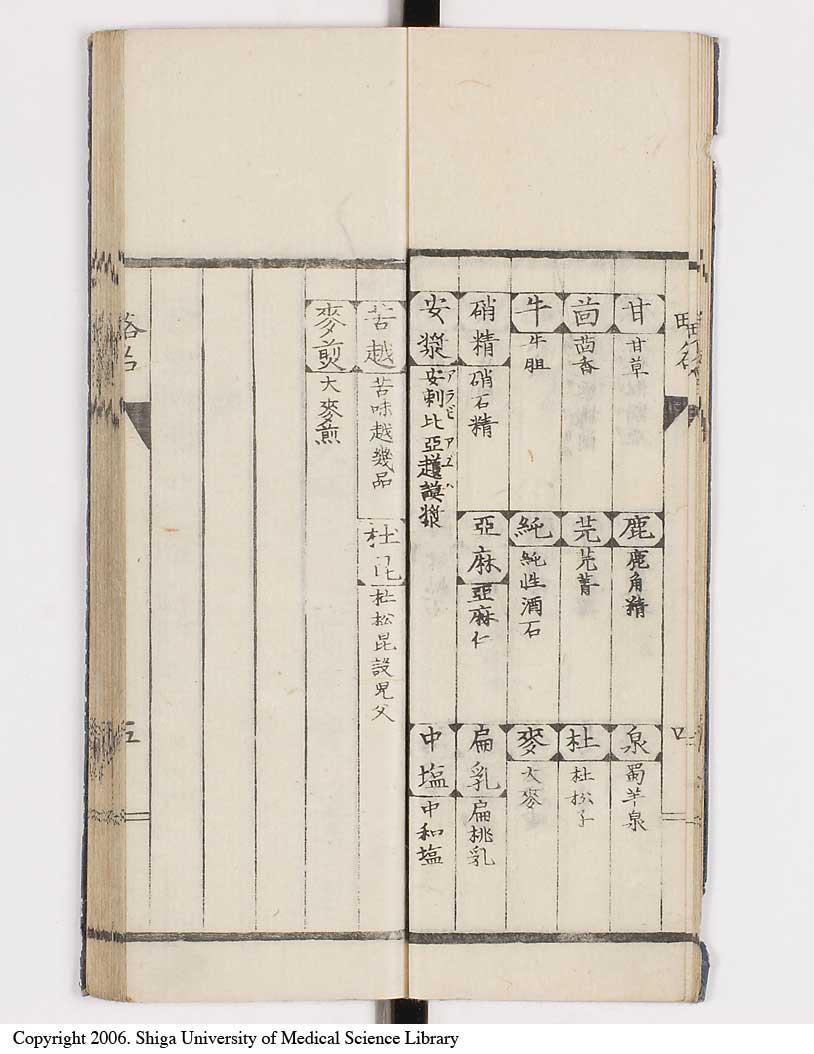 甘 甘草
鹿 鹿角精
泉 蜀羊泉
茴 茴香
芫 芫菁
杜 杜松子
牛 牛胆
純 純性酒石
麥 大麥
硝精 硝石精
亞麻 亞麻仁
扁乳 扁桃乳
安漿 安剌比亞護謨漿
アラビ アユハ
中塩 中和塩
苦越 苦味越幾品
杜昆 杜松昆設児父
麥煎 大麥煎
Copyright 2006. Shiga University of Medical Science Library